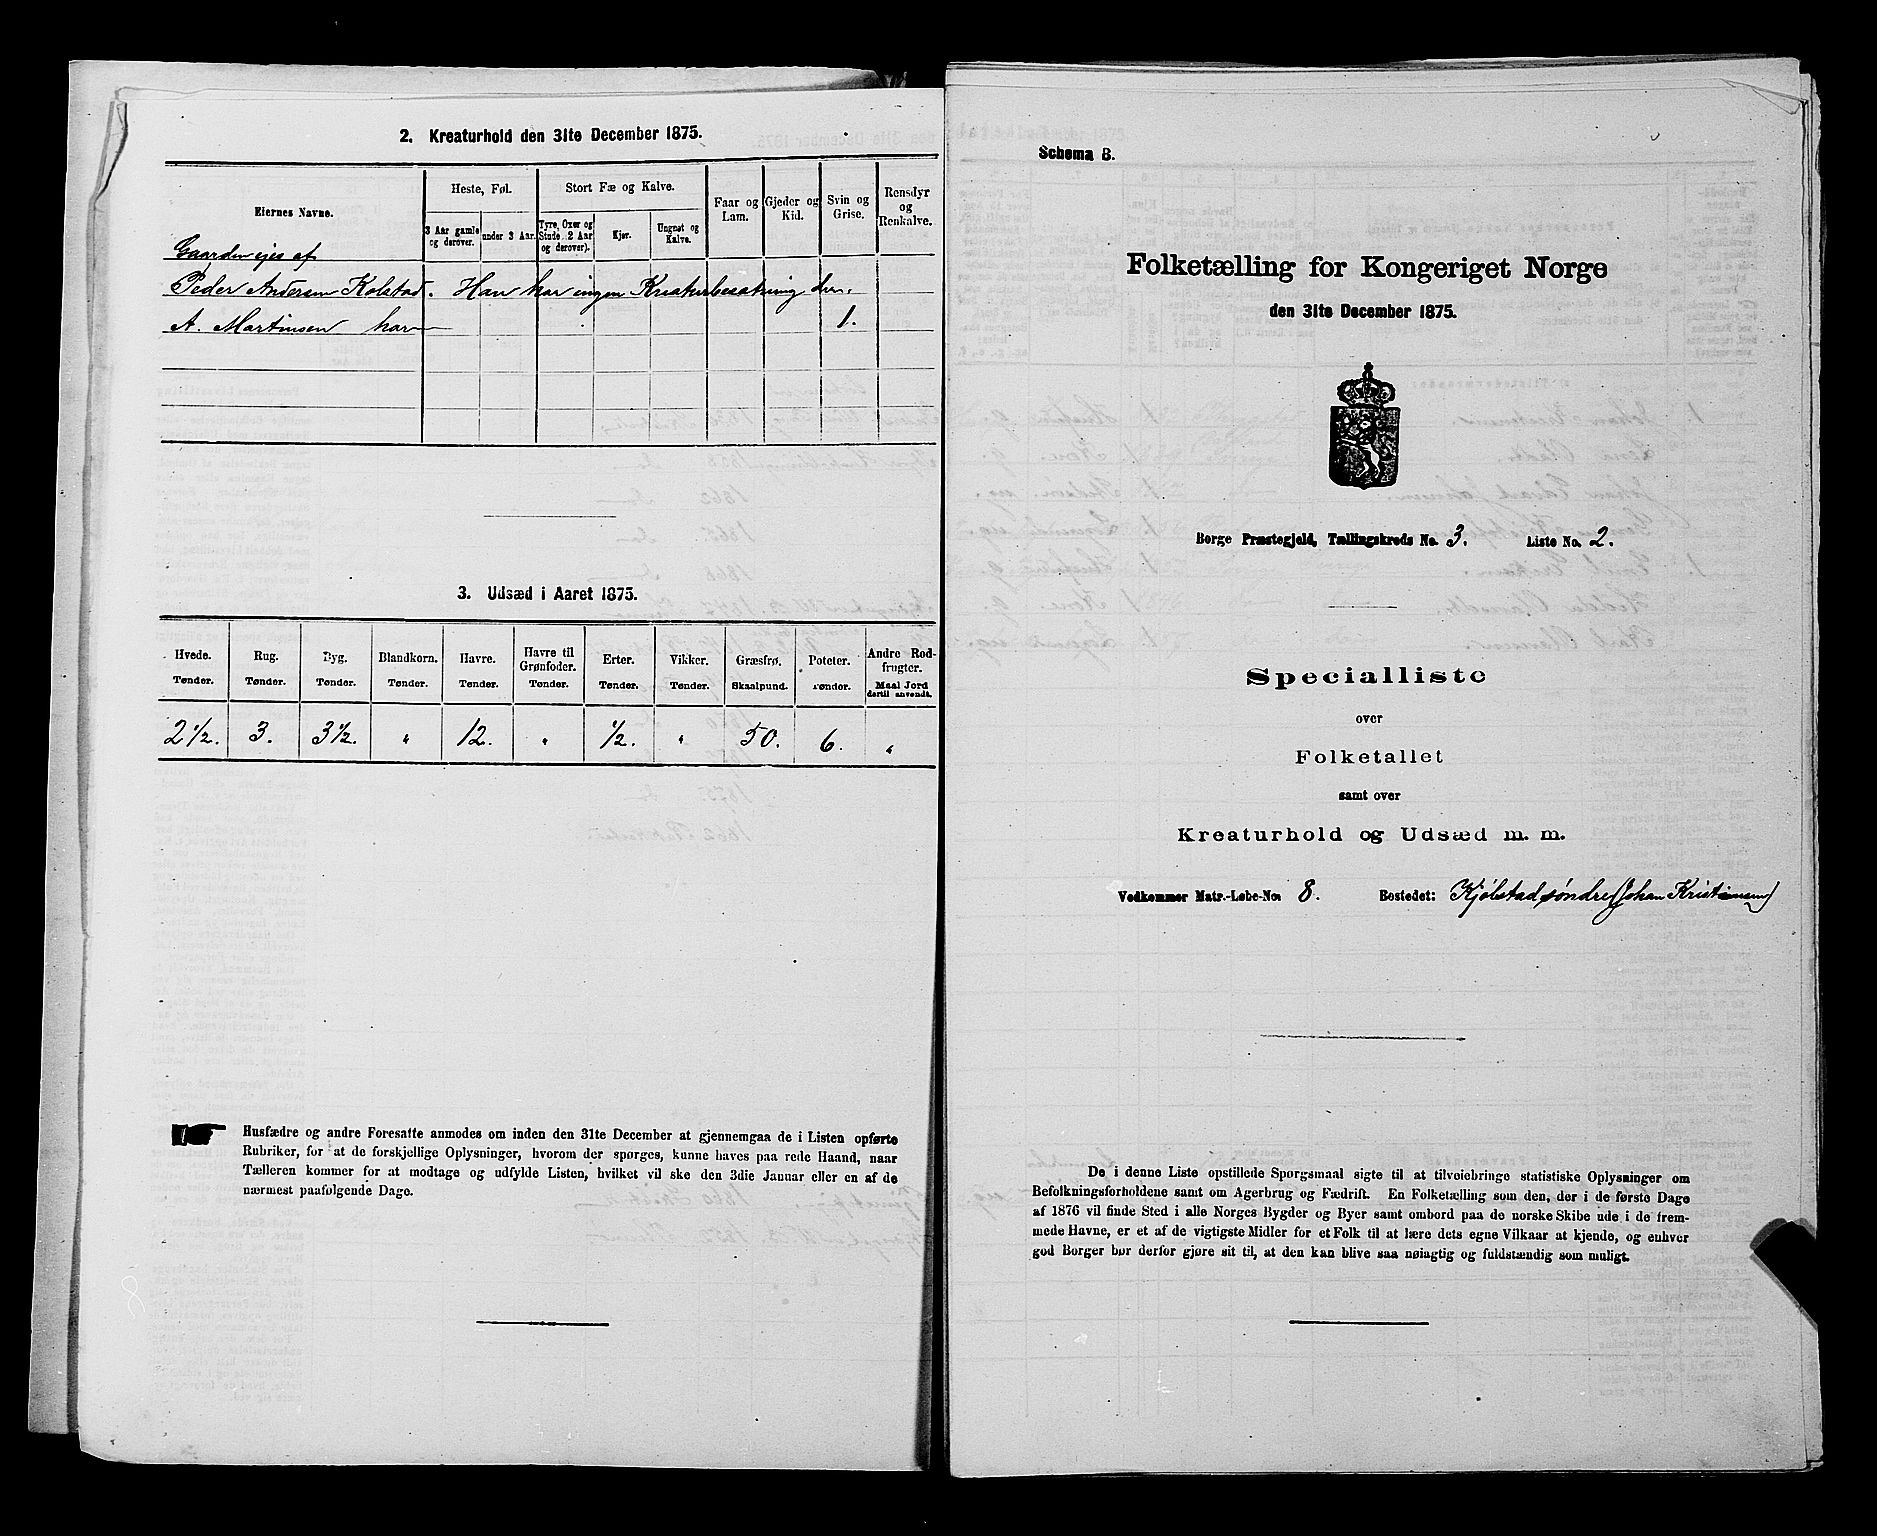 2. Kreaturhold den 31te December 1875.
Eiernes Navne.
Heste, Føl.
Stort Fæ og Kalve.
Faar og Lam.
Gjeder og Kid.
Svin og Grise.
Rensdyr og Renkalve.
3 Aar gamle og derover.
under 3 Aar.
Tyre, Oxer og Stude 2 Aar og derover).
Kjør.
Ungnøt og Kalve.
Gaarden ejes af
Peder Andersen Kolstad. Han har ingen Kreaturbesætning der.
A. Martinsen har 1.
3. Udsæd i Aaret 1875.
Hvede. Rug. Byg. Blandkorn. Havre. Havre til Grønfoder. Erter. Vikker. Græsfrø. Poteter. Andre Rodfrugter.
Tønder. Tønder. Tønder. Tønder. Tønder. Tønder. Tønder. Tønder. Skaalpund. Tønder. Maal Jord dertil anvendt.
2 1/2. 3. 3 1/2. " 12. " 1/2. " 50. 6. "
Husfædre og andre Foresatte anmodes om inden den 31te December at gjennemgaa de i Listen opførte
Rubriker, for at de forskjellige Oplysninger, hvorom der spørges, kunne haves paa rede Haand, naar
Tælleren kommer for at modtage og udfylde Listen, hvilket vil ske den 3die Januar eller en af de
nærmest paafølgende Dage.
Schema B.
Folketælling for Kongeriget Norge
den 31te December 1875.
Borge Præstegjeld, Tællingskreds No. 3. Liste No. 2.
Specialliste
over
Folketallet
samt over
Kreaturhold og Udsæd m. m.
Vedkommer Matr.-Løbe-No. 8. Bostedet: Kjølstad søndre (Johan Kristiansen)
De i denne Liste opstillede Spørgsmaal sigte til at tilveiebringe statistiske Oplysninger om
Befolkningsforholdene samt om Agerbrug og Fædrift. En Folketælling som den, der i de første Dage
af 1876 vil finde Sted i alle Norges Bygder og Byer samt ombord paa de norske Skibe ude i de frem-
mede Havne, er et af de vigtigste Midler for et Folk til at lære dets egne Vilkaar at kjende, og enhver
god Borger bør derfor gjøre sit til, at den kan blive saa nøiagtig og fuldstændig som muligt.